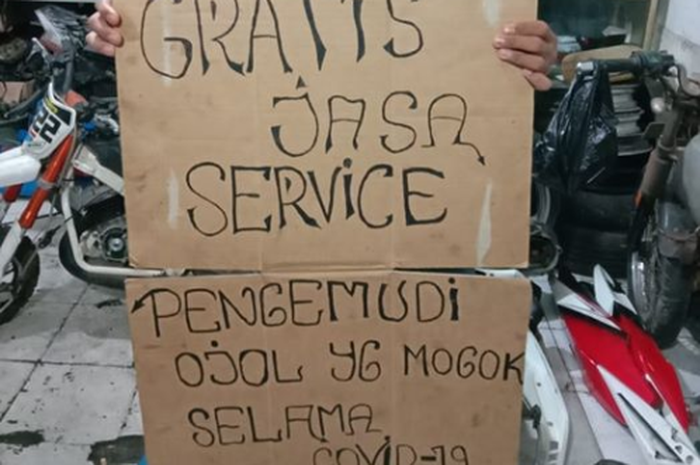 GRATIS
JASA
SERVICE
PENGEMUDi
OJOL YG MOGOK
SELAMA
COViD-19
22